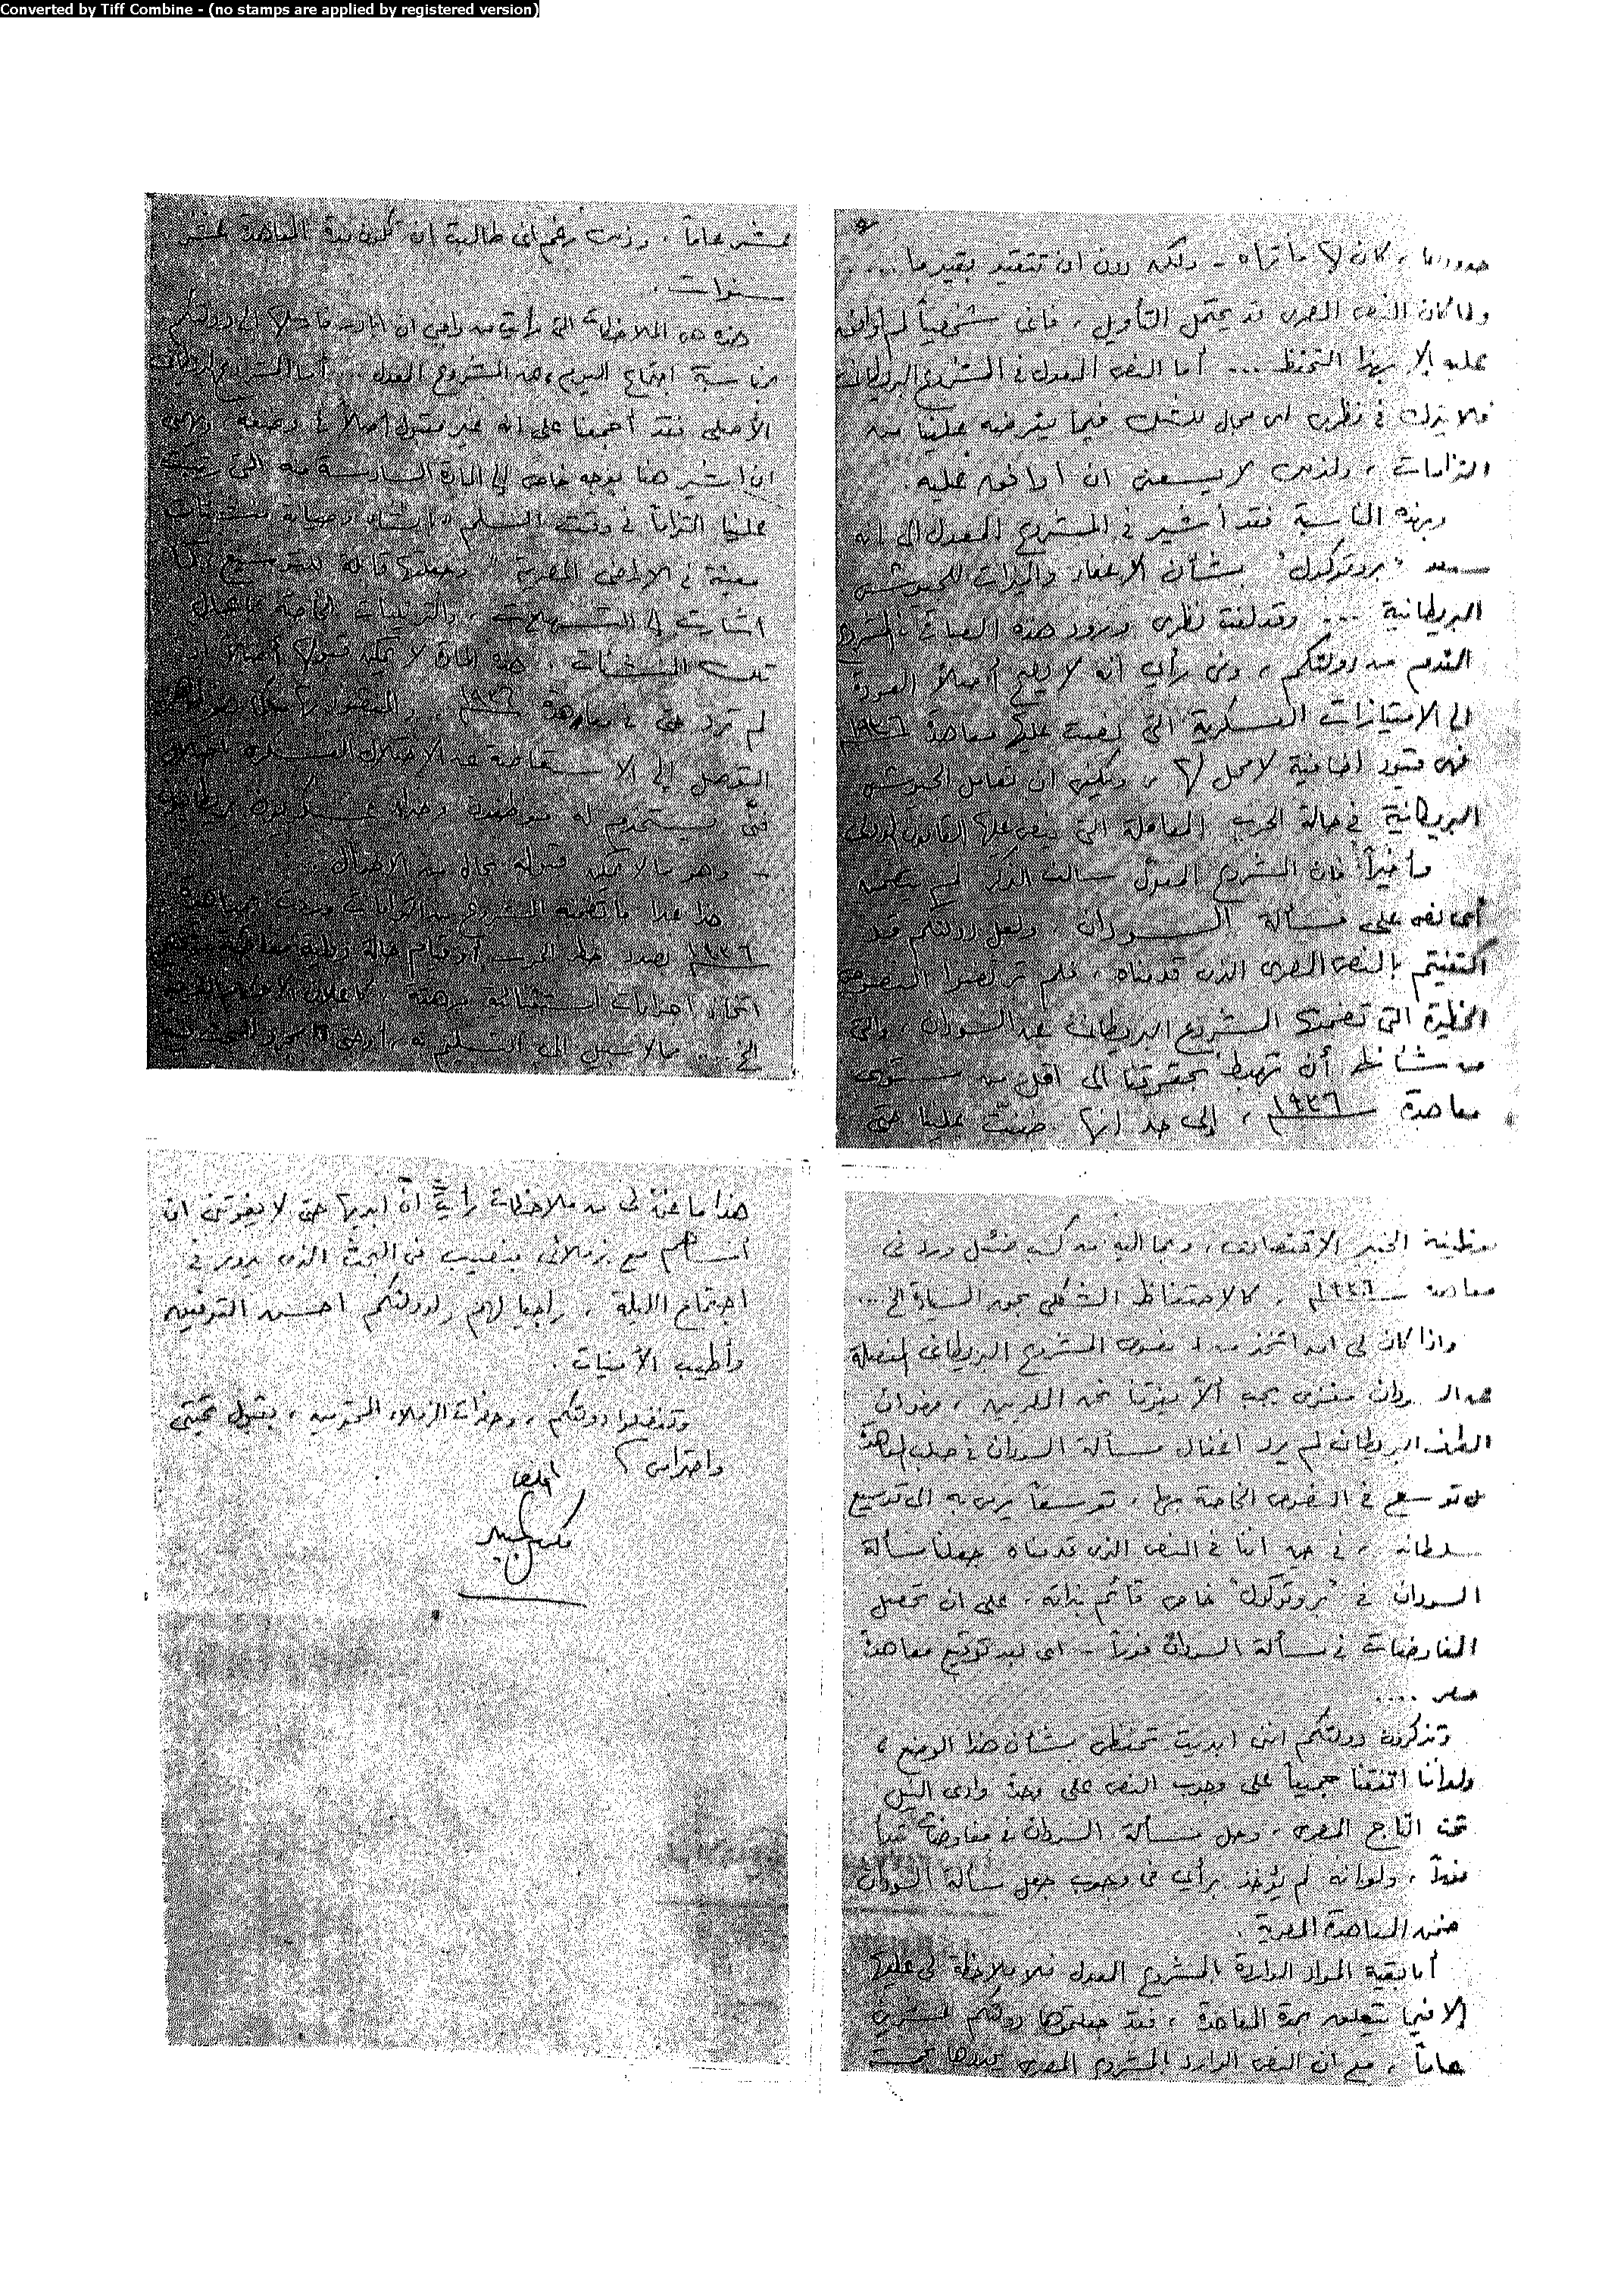 Converted by Tiff Combine - (no stamps are applied by registered version)
حدودها، كان لها ما تراه - ولكن دون ان تتقيد بقيدها ....
ولما كان النص المصرى قد يحتمل التأويل، فاننى شخصياً لم اوافق
عليه إلا بهذا التحفظ ... أما النص المعدل فى المشروع البريطانى
فلا يترك فى نظرى اى مجال للشك فيما يفرضه علينا من
التزامات، ولذلك لا يسعنى ان أوافق عليه.
وبهذه المناسبة فقد أشير فى المشروع المعدل الى انه
سيعد "بروتوكول" بشأن الإعفاء والميزات للجيوش
البريطانية ... وقد لفت نظرى ورود هذه العبارة بالمشروع
المقدم من دولتكم، وفى رأيى انه لا يصح أصلاً العودة
الى الامتيازات العسكرية التى نصت عليها معاهدة ١٩٣٦
فهى قيود اضافية لا محل لها، ويكفى ان تعامل الجيوش
البريطانية فى حالة الحرب المعاملة التى ينص عليها القانون الدولى
وأخيراً فان المشروع المعدل سالف الذكر لم يتضمن
أى نص على مسألة السودان، ولعل دولتكم قد
اكتفيتم بالنص المصرى الذى قدمناه، فلم ترتضوا النصوص
الخطيرة التى تضمنها المشروع البريطانى عن السودان، والتى
من شأنها أن تهبط بحقوقنا الى اقل من مستوى
معاهدة ١٩٣٦، إلى حد انها ضنت علينا حتى
بوظيفة الخبير الاقتصادى، وما اليه من كسب ضئيل ورد فى
معاهدة ١٩٣٦، كالاحتفاظ الشكلى بحق السيادة الخ ...
واذا كان لى ان اتخذ من نصوص المشروع البريطانى المفصلة
عن السودان مغزى يجب ألا يفوتنا نحن المصريين، فهو ان
الطرف البريطانى لم يرد اغفال مسألة السودان فى صلب المعاهدة
بل توسع فى النصوص الخاصة بها، توسعاً يرمى به الى توسيع
سلطانه، فى حين اننا فى النص الذى قدمناه جعلنا مسألة
السودان فى "بروتوكول" خاص قائم بذاته، على ان تحصل
المفاوضات فى مسألة السودان فوراً - اى بعد توقيع معاهدة
مصر ....
وتذكرون دولتكم اننى ابديت تحفظى بشأن هذا الوضع،
ولو أننا اتفقنا جميعاً على وجوب النص على وحدة وادى النيل
تحت التاج المصرى، وحل مسألة السودان فى مفاوضات تبدأ
فوراً، ولو انه لم يؤخذ برأيى فى وجوب جعل مسألة السودان
ضمن المعاهدة المصرية.
أما بقية المواد الواردة بالمشروع المعدل فلا ملاحظة لى عليها
إلا فيما يتعلق بمدة المعاهدة، فقد جعلتموها دولتكم عشرين
عاماً، مع ان النص الوارد بالمشروع المصرى يجعلها خمسة
عشر عاماً، وذلك رغم انى طالبت ان تكون مدة المعاهدة عشر
سنوات.
هذه هى الملاحظات التى رأيت من واجبى ان أبادر بإرسالها الى دولتكم
بمناسبة اجتماع اليوم، عن المشروع المعدل ... أما المشروع البريطانى
الأصلى فقد أجمعنا على انه غير مقبول أصلاً
ان اشير هنا بوجه خاص الى المادة السادسة منه التى رتبت
علينا التزاماً فى وقت السلم "بانشاء وصيانة منشآت
معينة فى الاراضى المصرية" وجعلتها قابلة للتوسيع، كما
اشارت الى التسهيلات، والترتيبات الخاصة
تلك المنشآت. هذه المادة لا يمكن قبولها أصلاً، اذ
لم ترد حتى بمعاهدة ١٩٣٦،
التوصل إلى الاستعاضة عن الاحتلال العسكرى باحتلال
فنى يستخدم له موظفون
- وهو ما لا يمكن قبوله بحال من الأحوال.
هذا عدا ما تضمنه المشروع من التزامات وردت بمعاهدة
١٩٣٦ بصدد خطر الحرب أو قيام حالة دولية مفاجئة
اتخاذ اجراءات استثنائية مرهقة، كاعلان الاحكام العرفية
الخ ... مما لا سبيل الى التسليم به
هذا ما عنّ لى من ملاحظات رأيت أن ابديها حتى لا يفوتنى ان
أساهم مع زملائى بنصيب فى البحث الذى يدور فى
اجتماع الليلة، راجياً لهم ولدولتكم احسن التوفيق
وأطيب الأمنيات.
وتفضلوا دولتكم، وحضرات الزملاء المحترمين، بقبول تحيتى
واحترامى،
المخلص